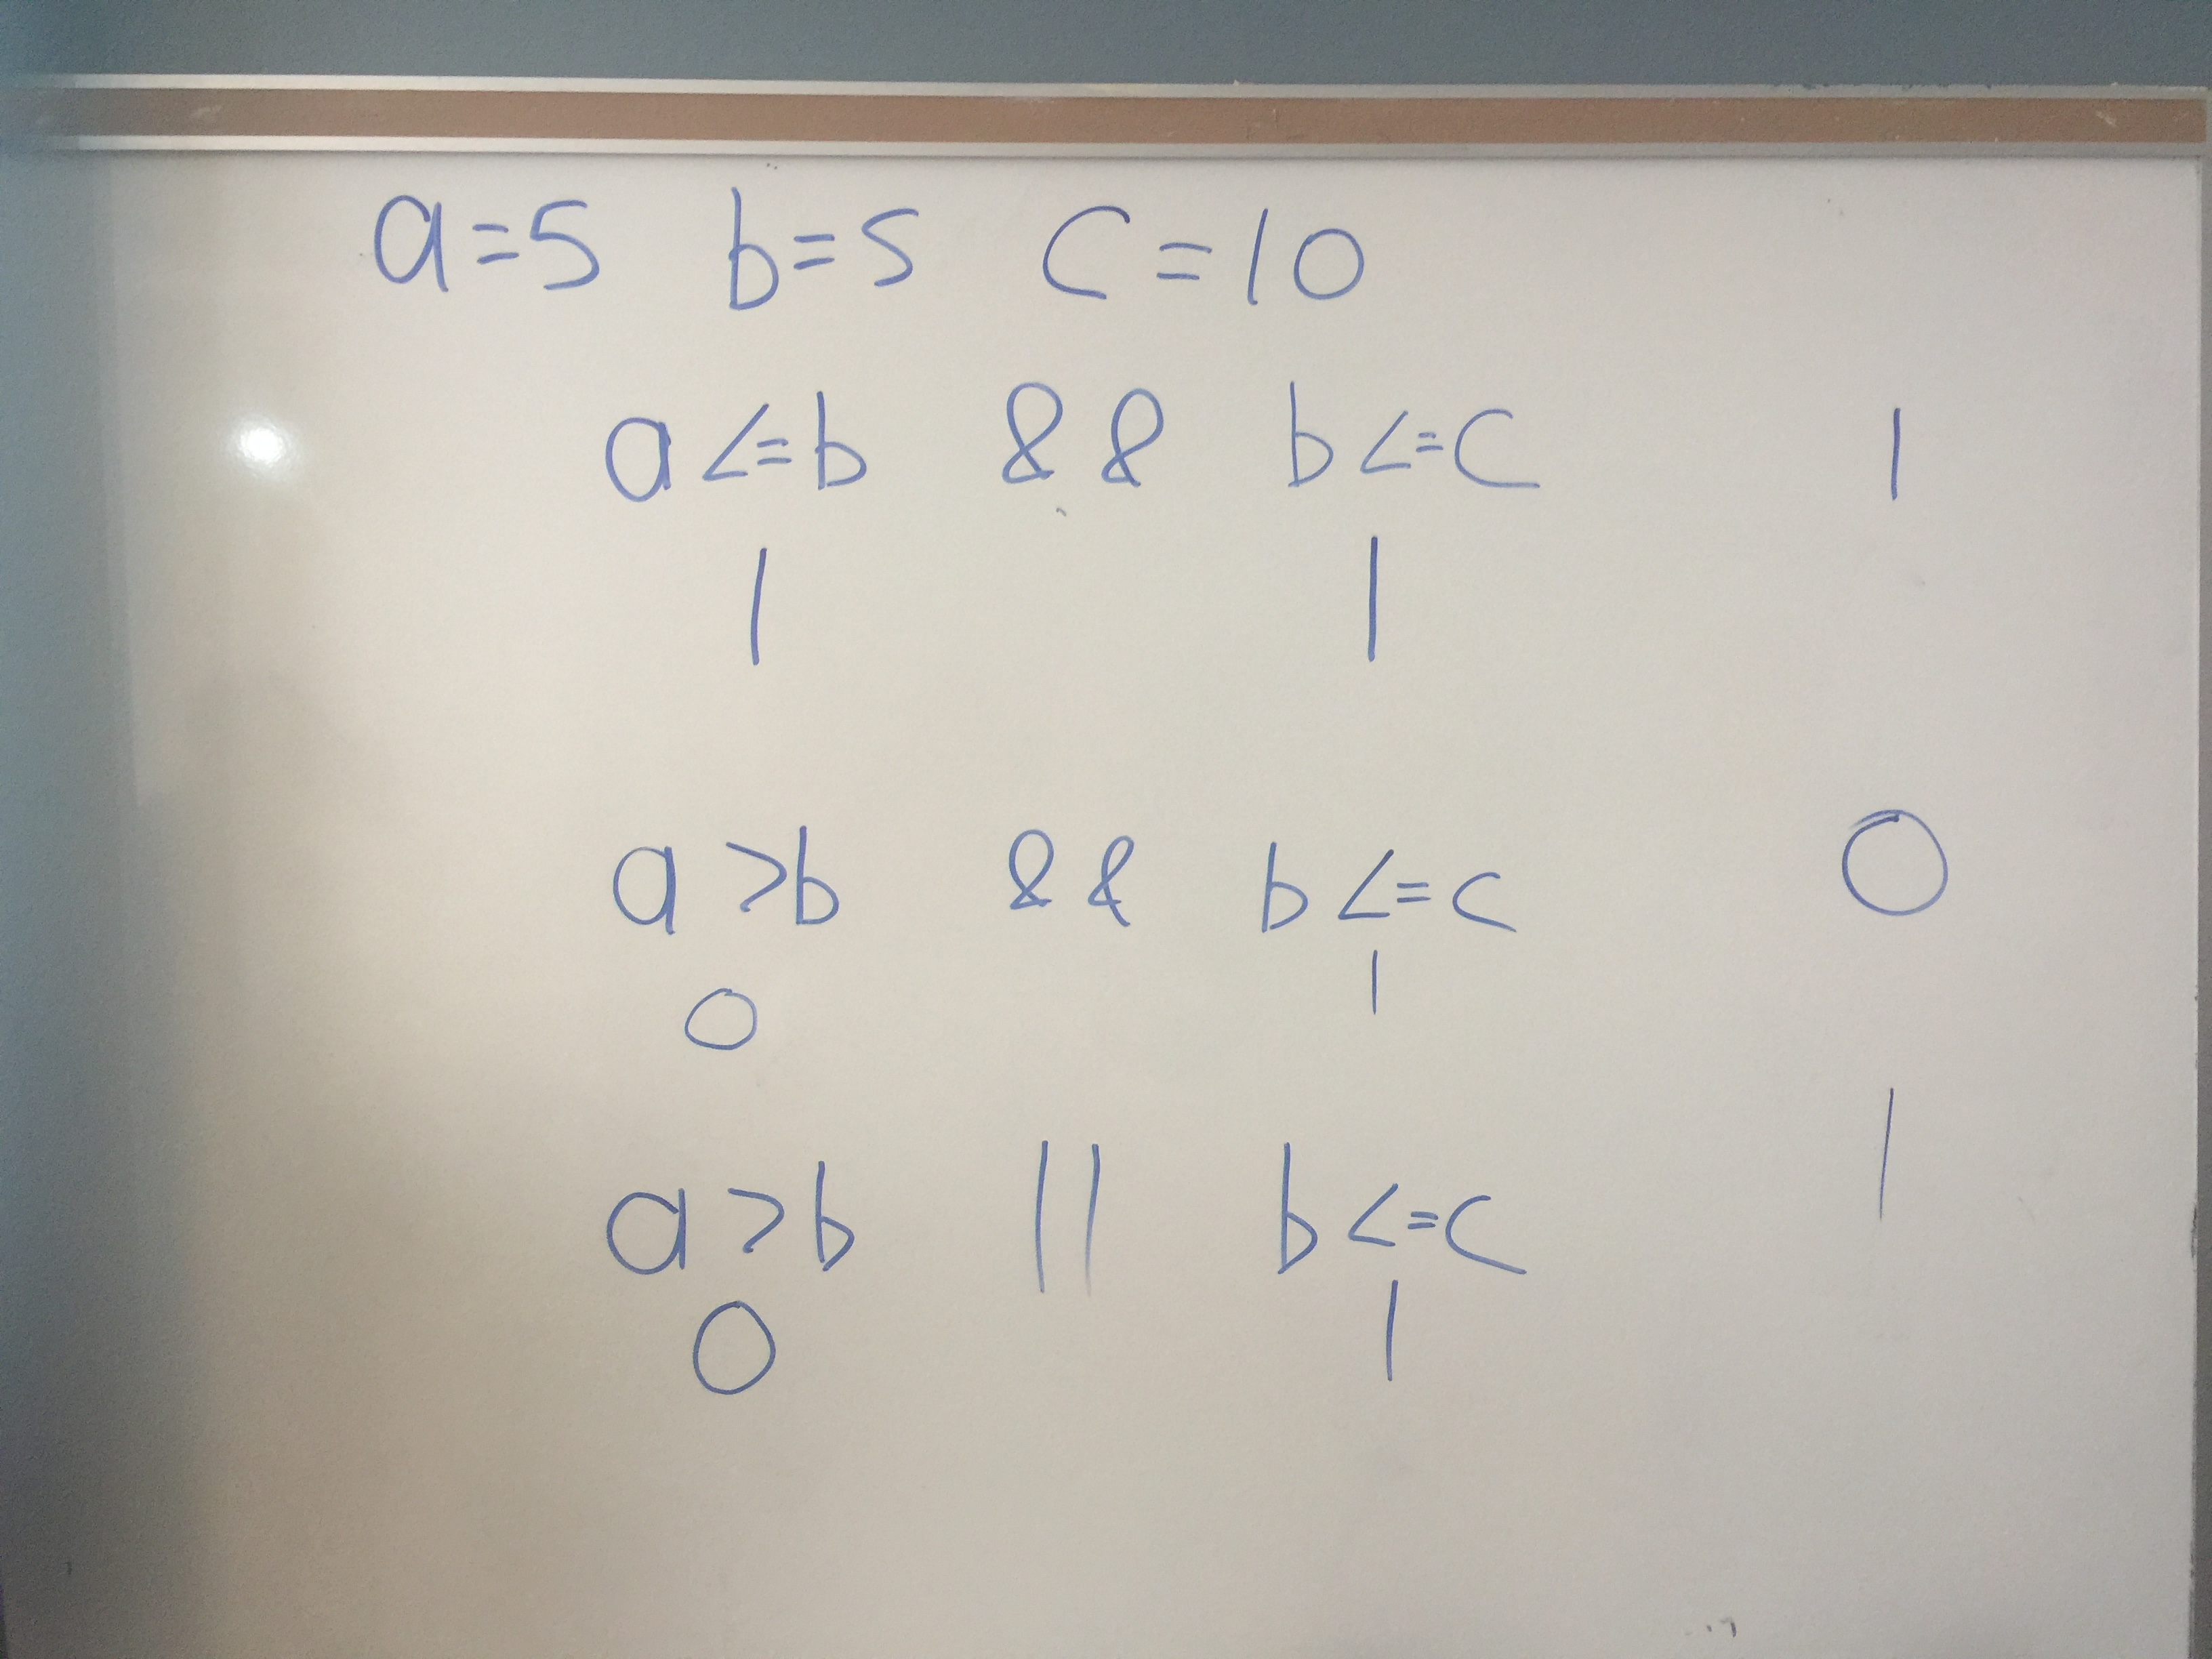 a=5 b=5 c=10
a<=b && b<=c 1
1 1
a>b && b<=c 0
0 1
a>b || b<=c 1
0 1